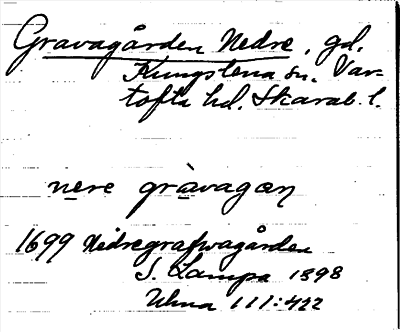 Gravagården Nedre, gd.
Kungslena sn. Var-
tofta hd. Skarab. l.
nere gràvagæn
1699 Nedregrafwagården
S. Lampa 1898
Uhna 111:422